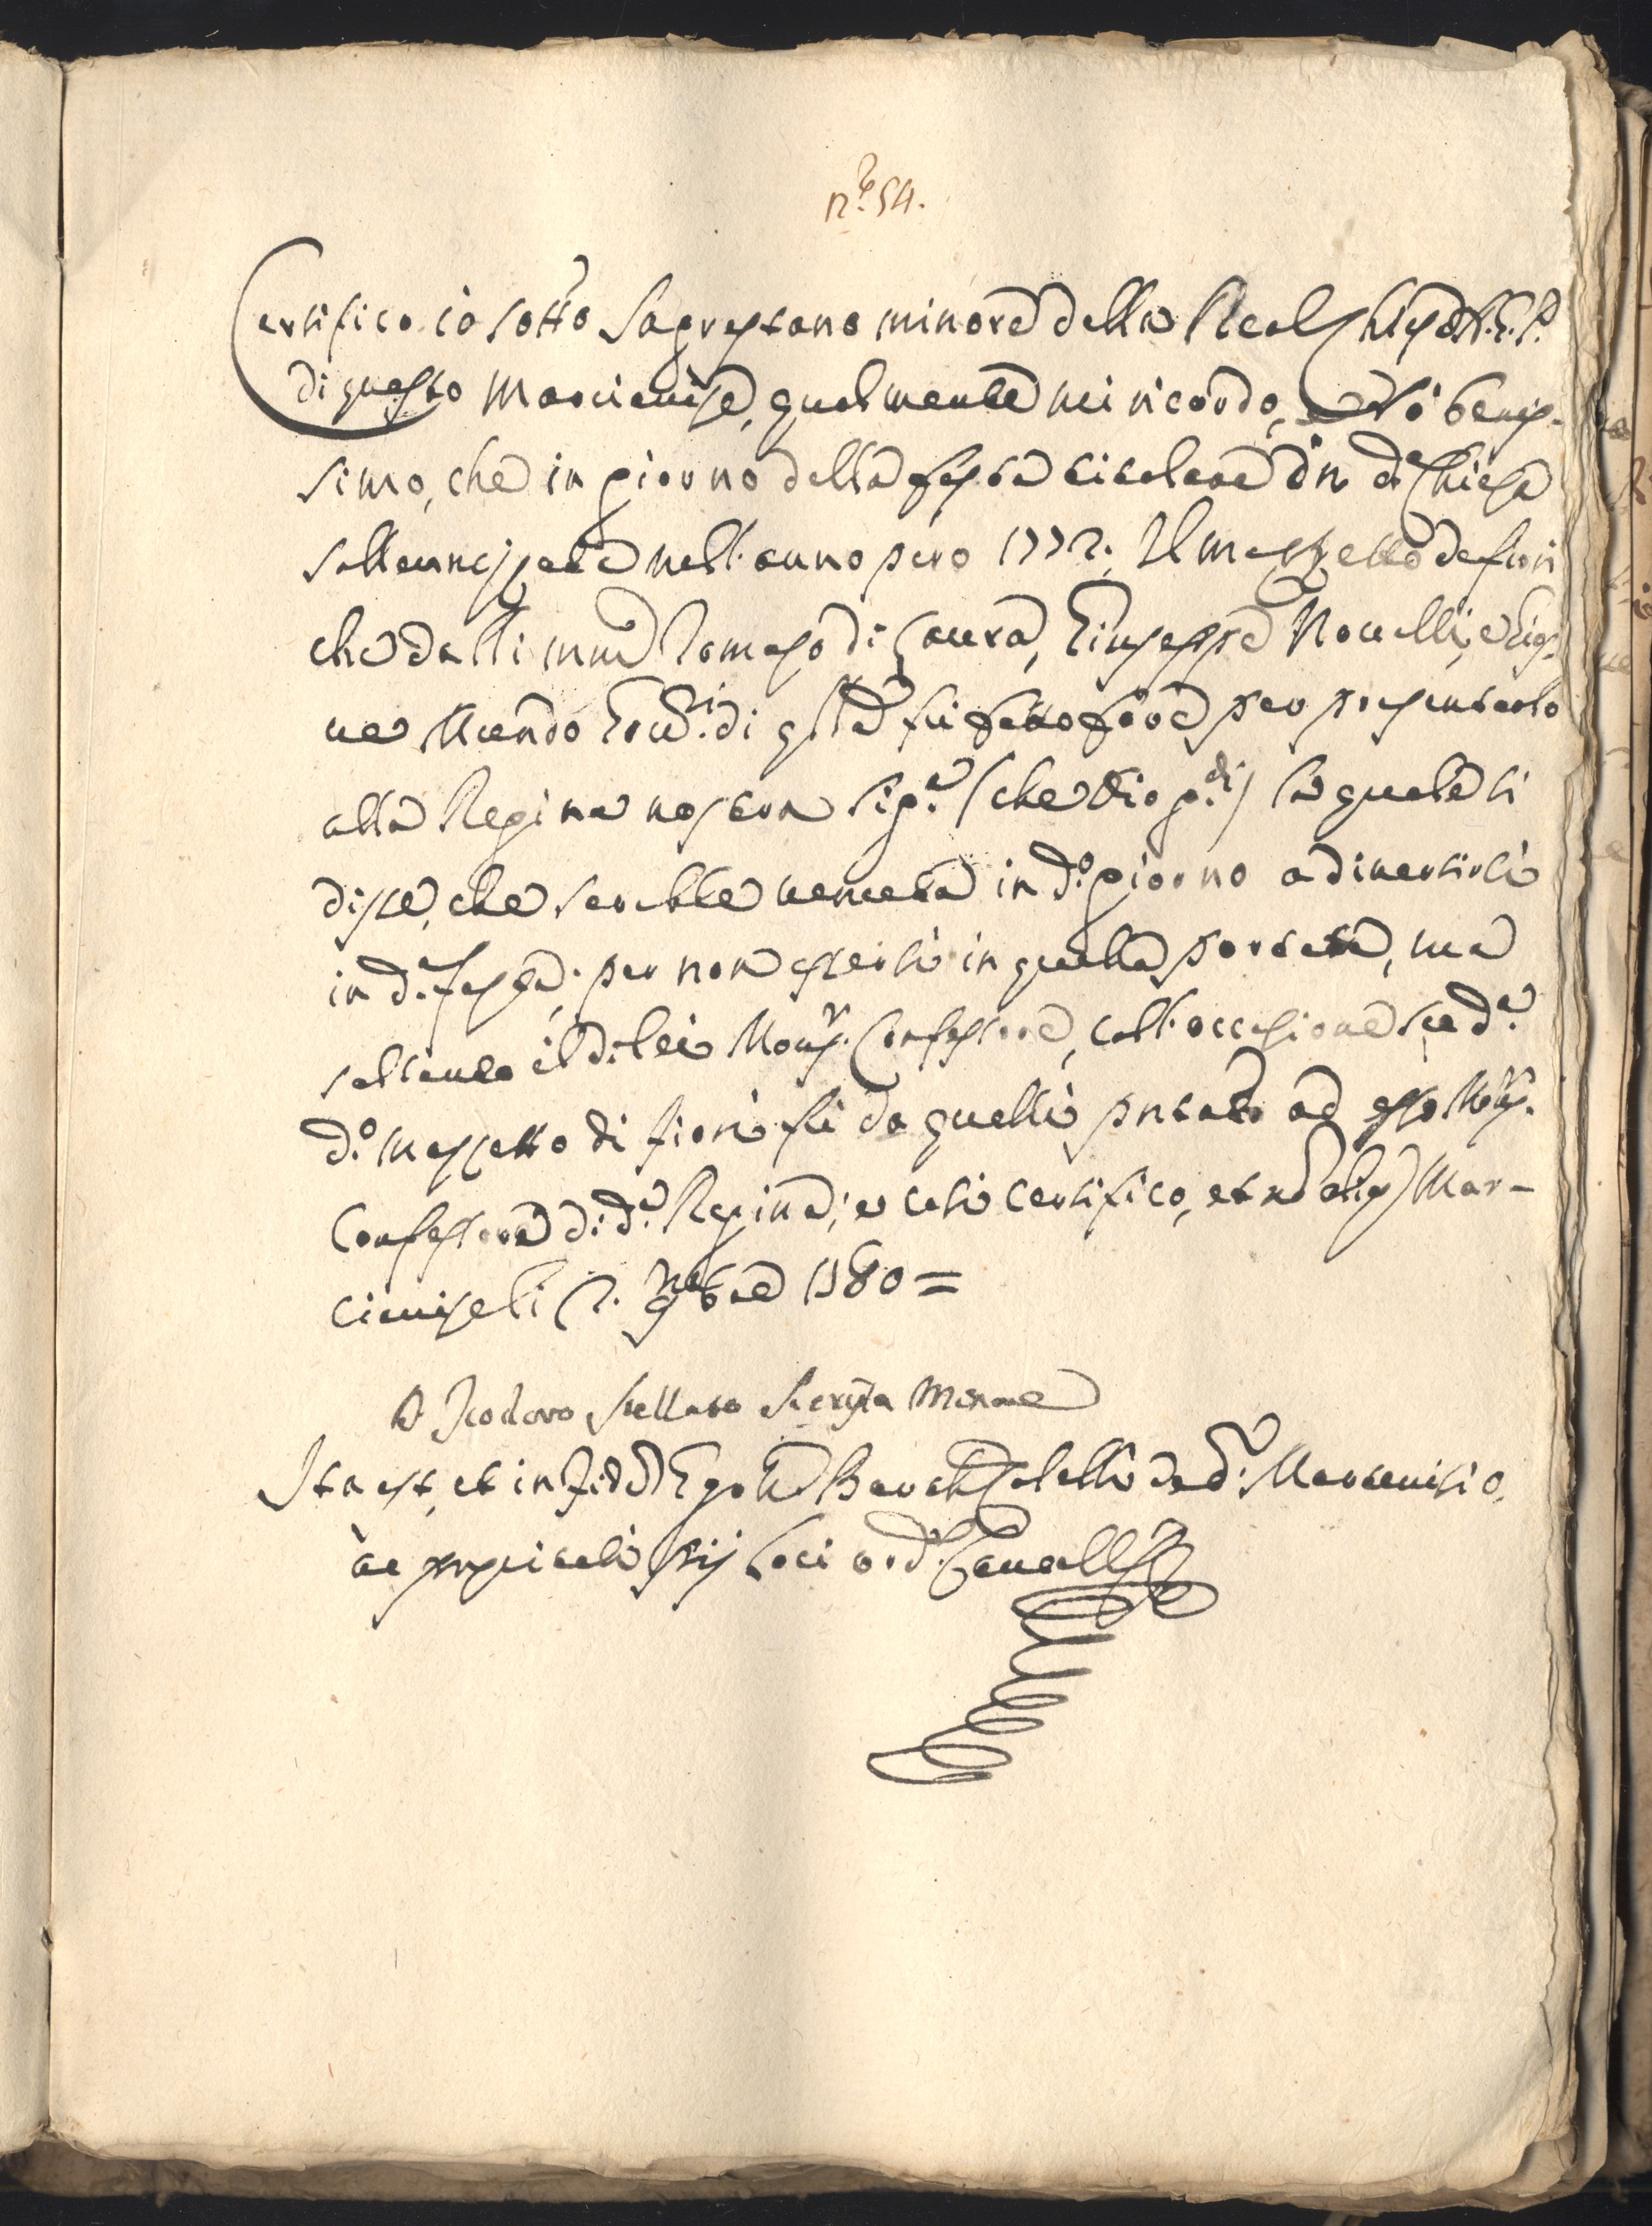 n.º 54.
Certifico io sotto Sagrestano minore della Real Chiesa
di questo Marcianise, qualmente mi ricordo, e sò benis-
simo, che in giorno della festa titolare in d.ª Chiesa
sollennizzata nell'anno pero 1772. Il mazzetto de fiori
che dalli Tomaso di Laura, Giuseppe Novelli, e
di fù fatto fare per presentarlo
alla Regina nostra Sig.ª (che Dio g.di) la quale li
disse, che sarebbe venuta in d.º giorno a divertirsi
in d.ª festa; per non essersi in quella portata, ma
soltanto il di lei Mons.r Confessore, coll'occasione sud.ª
d.º mazzetto di fiori fù da quelli pntato ad esso Mons.r
Confessore di d.ª Regina; e così certifico, et Mar-
cianise li 9bre 1780 =
D. Teodoro Stellato Sacrista Minore
Ita est, et in fidem Ego Not. de d.ª Marcenisio,
ac Pij Loci